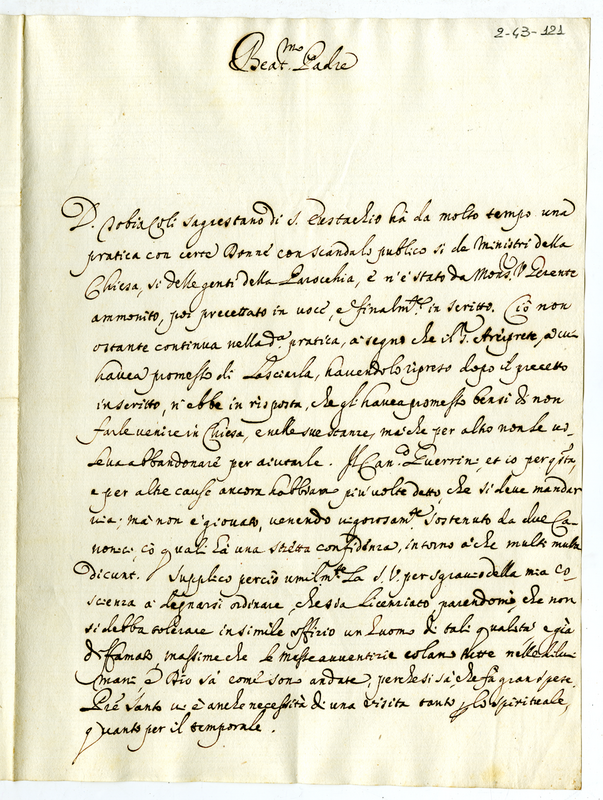 2-43-121
Beat.mo Padre
D. Tobia Coli sagrestano di S. Eustachio hà da molto tempo una
pratica con certe Donne con scandalo publico si de Ministri della
Chiesa, si delle genti della Parochia, e n'è stato da Mons.
ammonito, poi precettato in voce, e finalm.te in scritto. Ciò non
ostante continua nella d.a pratica, a segno che il S. Arciprete, a cui
havea promesso di lasciarla, havendolo ripreso dopo il precetto
in scritto, n'ebbe in risposta, che gli havea promesso bensi di non
farle venire in Chiesa, e nelle sue stanze, mà che per altro non le vo-
leva abbandonare per aiutarle. Il Can.co Guerrini, et io per
e per altre cause ancora habbiam più volte detto, che si deve mandar
via; mà non è giovato, venendo vigorosam.te sostenuto da due Ca-
nonici, cò quali hà una stretta confidenza, intorno à che multi multa
dicunt. Supplico perciò umilm.te la S. V. per sgravio della mia co-
scienza a' degnarsi ordinare, che sia licenziato, parendomi, che non
si debba tolerare in simile offizio un huomo di tali qualità, e già
diffamato, massime che le messe avventizie colan tutte nelle di lui
mani e Dio sà come son andate, perche si sà che fà gran spese.
Pre santo vi è anche necessità di una visita tanto p lo spirituale,
quanto per il temporale.